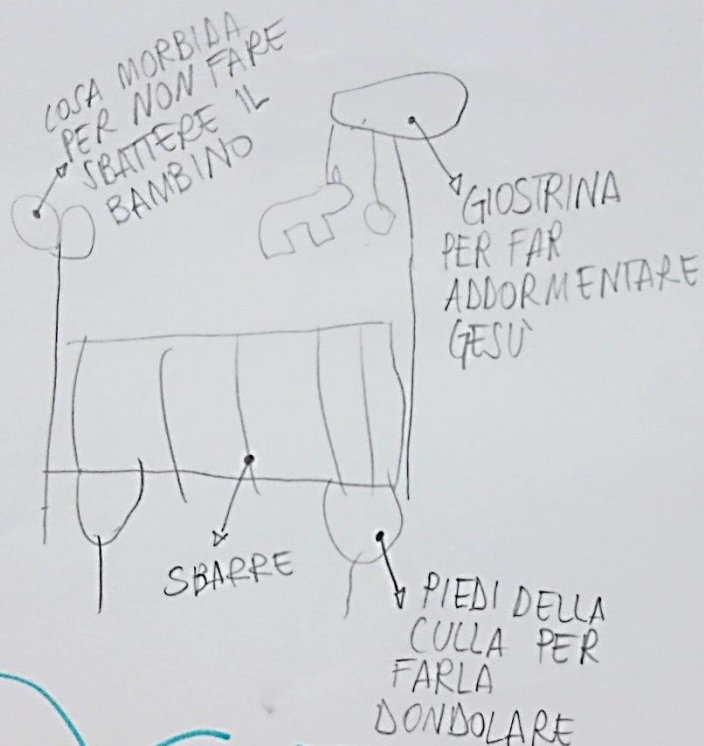 COSA MORBIDA
PER NON FARE
SBATTERE IL
BAMBINO
GIOSTRINA
PER FAR
ADDORMENTARE
GESÙ
SBARRE
PIEDI DELLA
CULLA PER
FARLA
DONDOLARE